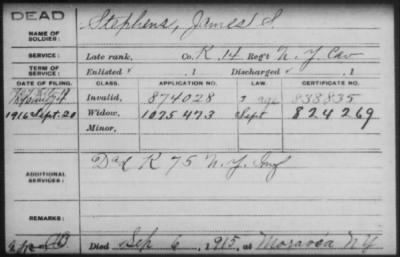 DEAD
NAME OF SOLDIER: Stephens, James S.
SERVICE: Late rank, Co. K. 14 Reg't N. Y. Cav
TERM OF SERVICE: Enlisted , 1 Discharged , 1
DATE OF FILING. CLASS. APPLICATION NO. LAW. CERTIFICATE NO.
Invalid, 874028 838835
1916 Sept. 20 Widow, 1075473 Sept 824269
Minor,
ADDITIONAL SERVICES: K 75 N. Y. Inf
REMARKS:
Died Sep 6, 1915, at Moravia N Y